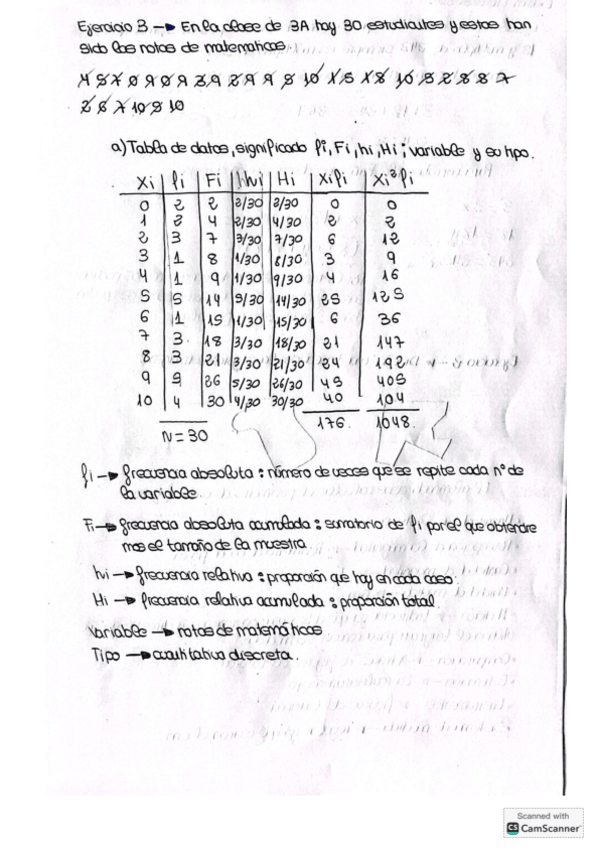 Ejercicio 3 → En la clase de 3A hay 30 estudiantes y estas han
sido las notas de matematicas
2 6 7 10 9 10
a) Tabla de datos, significado fi, Fi, hi, Hi; variable y su tipo.
Xi fi Fi hi Hi Xifi Xi²fi
0 2 2 2/30 2/30 0 0
1 2 4 2/30 4/30 2 2
2 3 7 3/30 7/30 6 12
3 1 8 1/30 8/30 3 9
4 1 9 1/30 9/30 4 16
5 5 14 5/30 14/30 25 125
6 1 15 1/30 15/30 6 36
7 3 18 3/30 18/30 21 147
8 3 21 3/30 21/30 24 192
9 5 26 5/30 26/30 45 405
10 4 30 4/30 30/30 40 104
N=30 176. 1048.
fi → frecuencia absoluta: número de veces que se repite cada nº de
la variable
Fi → frecuencia absoluta acumulada: sumatorio de fi por el que obtendre
mos el tamaño de la muestra.
hi → frecuencia relativa: proporción que hay en cada caso.
Hi → frecuencia relativa acumulada: proporción total.
Variable → notas de matemáticas
Tipo → cuantitativa discreta.
Scanned with
CS CamScanner